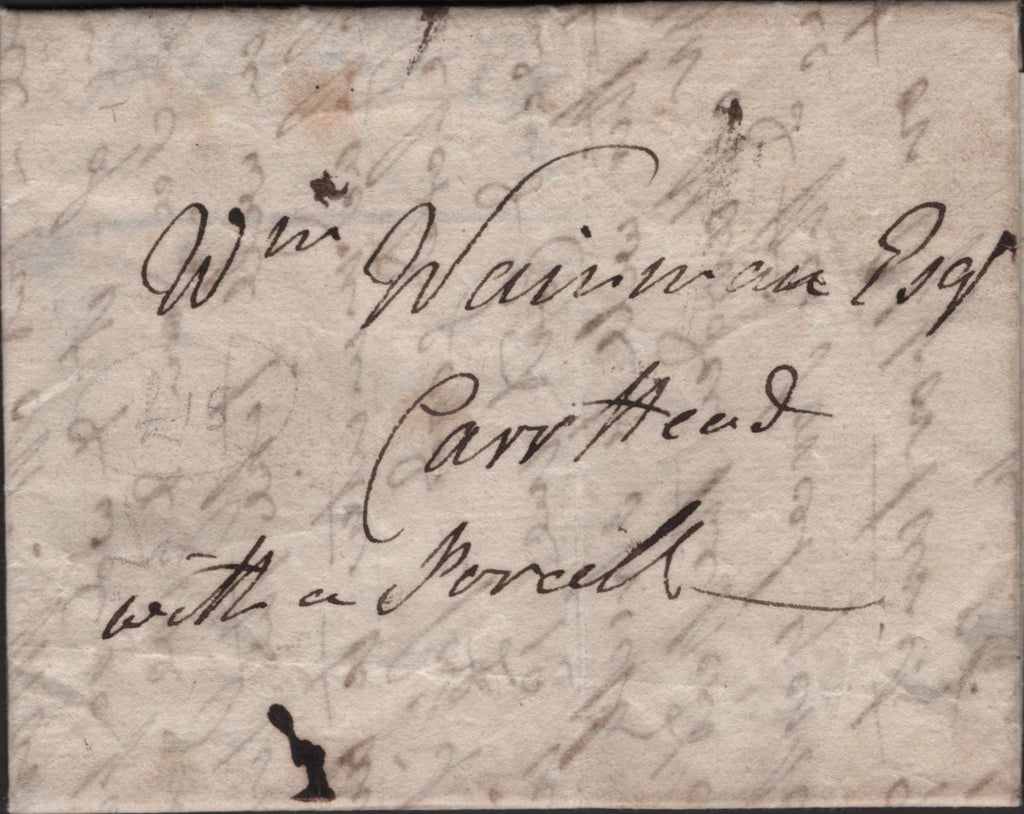 Wm Wainman Esqr
Carr Head
with a Porcell
£15